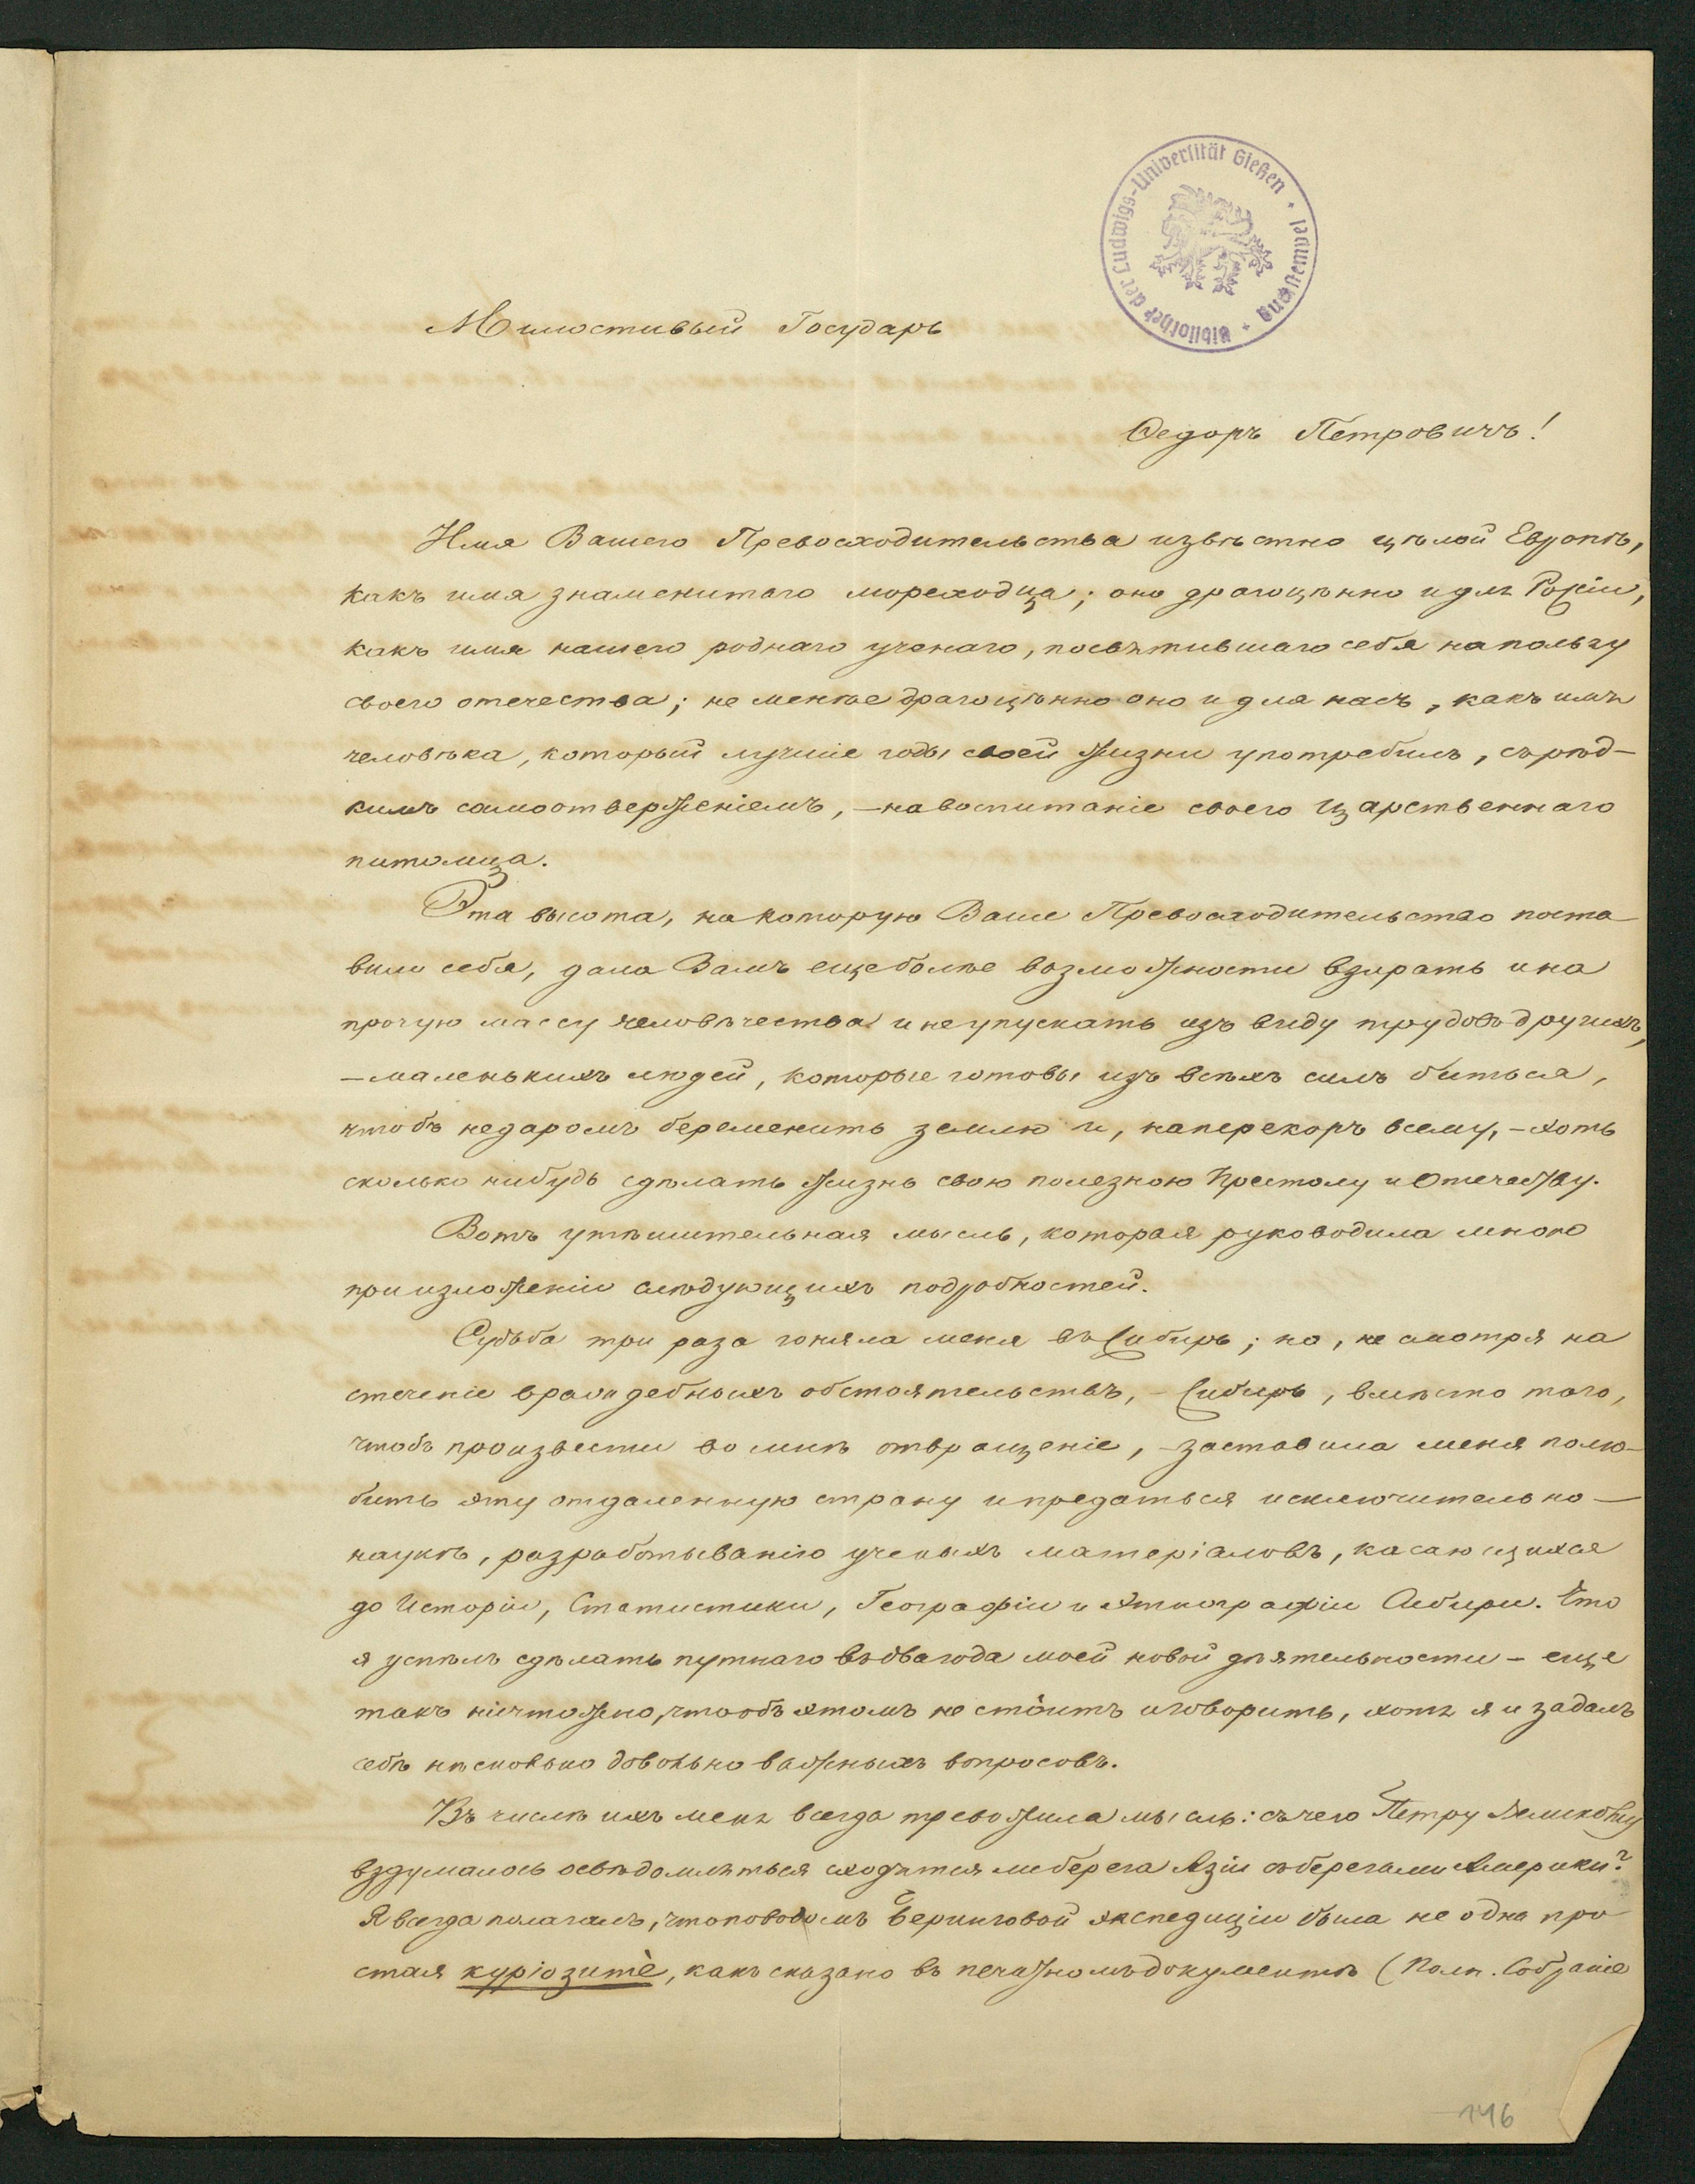 Bibliothek der Ludwigs-Universität Gießen
Милостивый Государь
Ѳедоръ Петровичъ!
Имя Вашего Превосходительства извѣстно цѣлой Европѣ,
какъ имя знаменитаго мореходца; оно драгоцѣнно и для Россіи,
какъ имя нашего роднаго ученаго, посвятившаго себя на пользу
своего отечества; не менѣе драгоцѣнно оно и для насъ, какъ имя
человѣка, который лучшіе годы своей жизни употребилъ, съ рѣд–
кимъ самоотверженіемъ, – на воспитаніе своего Царственнаго
питомца.
Эта высота, на которую Ваше Превосходительство поста
вило себя, дала Вамъ еще болѣе возможности взирать и на
прочую массу человѣчества и не упускать изъ виду трудовъ другихъ,
– маленькихъ людей, которые готовы изъ всѣхъ силъ биться,
чтобъ не даромъ беременить землю и, наперекоръ всему, – хоть
сколько нибудь сдѣлать жизнь свою полезною Престолу и Отечеству.
Вотъ утѣшительная мысль, которая руководила мною
при изложеніи слѣдующихъ подробностей.
Судьба три раза гоняла меня въ Сибирь; но, не смотря на
стеченіе враждебныхъ обстоятельствъ, – Сибирь, вмѣсто того,
чтобъ произвести во мнѣ отвращеніе, – заставила меня полю–
бить эту отдаленную страну и предаться исключительно –
наукѣ, разработыванію ученыхъ матеріаловъ, касающихся
до Исторіи, Статистики, Географіи и Этнографіи Сибири. Что
я успѣлъ сдѣлать путнаго въ два года моей новой дѣятельности – еще
такъ ничтожно, что объ этомъ не сто́итъ и говорить, хотя я и задалъ
себѣ нѣсколько довольно важныхъ вопросовъ.
Въ числѣ ихъ меня всегда тревожила мысль: съ чего Петру Великому
вздумалось освѣдомляться сходятся ли берега Азіи съ берегами Америки?
Я всегда полагалъ, что поводомъ Беринговой экспедиціи была не одна про
стая куріозитѐ, какъ сказано въ печатномъ документѣ (Полн. Собраніе
146